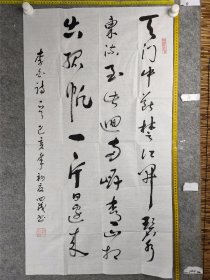 天门中断楚江开碧水
东流至此迴两岸青山相
对出孤帆一片日边来
李白诗一首己亥年初夏